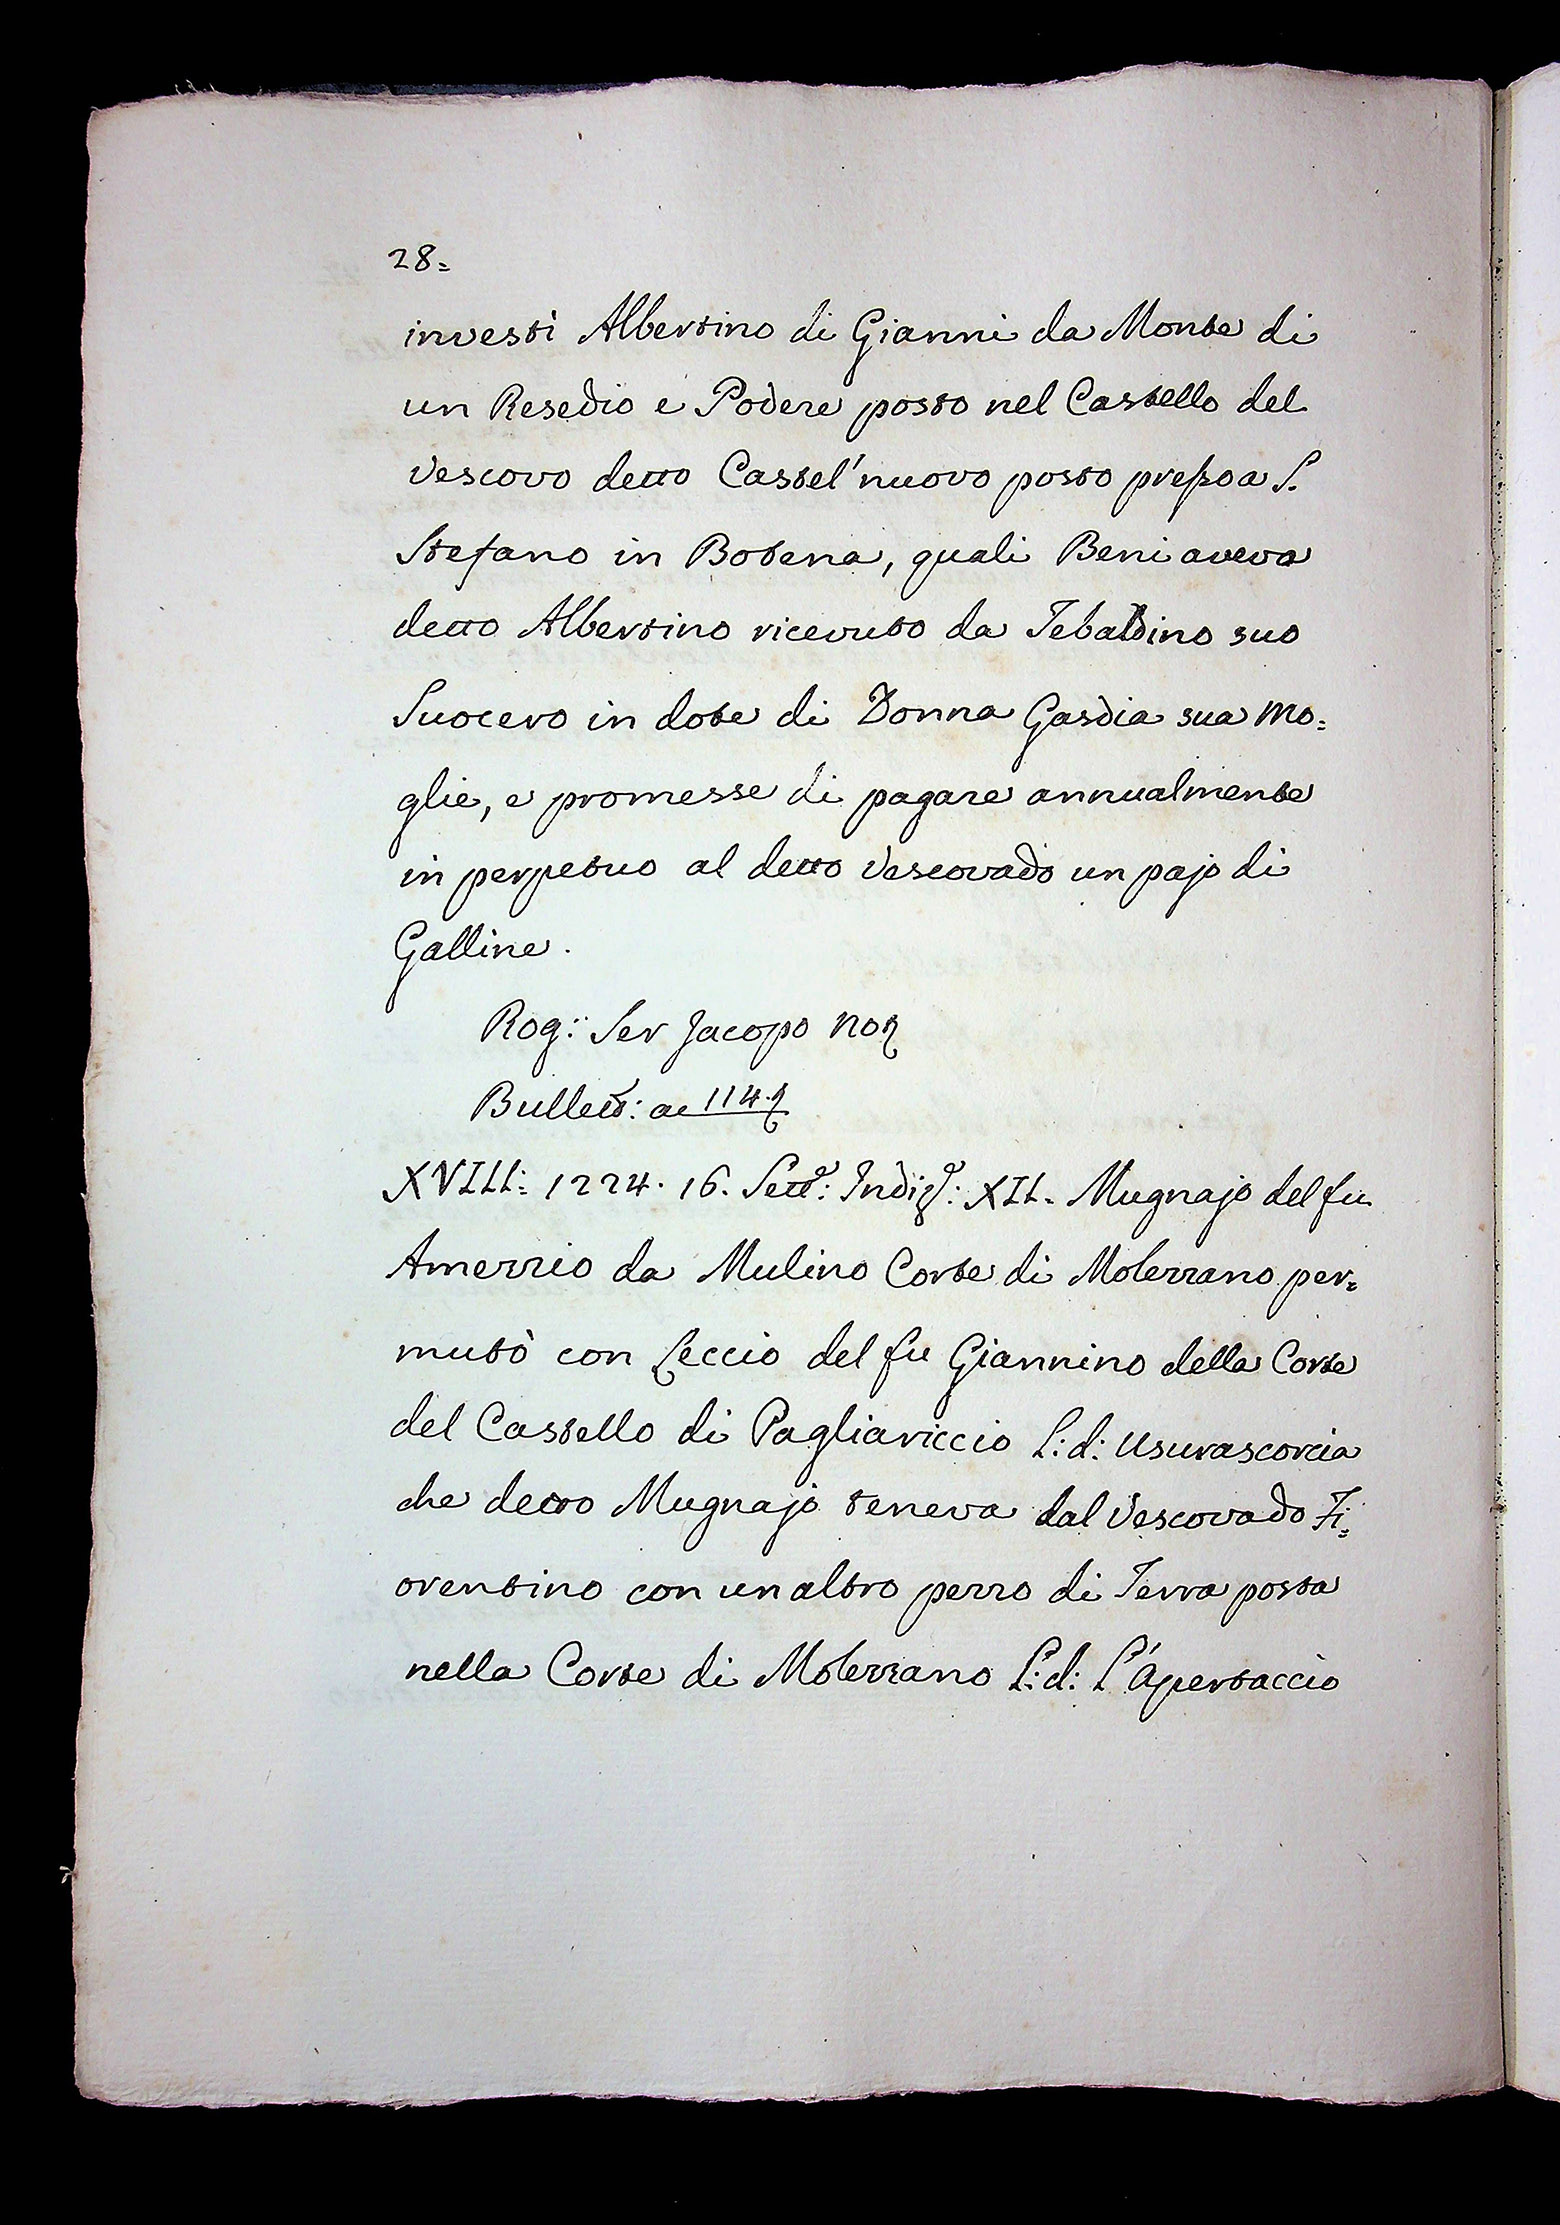 28=
investì Albertino di Gianni da Monte di
un Resedio e Podere posto nel Castello del
Vescovo detto Castel'nuovo posto presso a S.
Stefano in Botena, quali Beni aveva
detto Albertino ricevuto da Tebaldino suo
Suocero in dote di Donna Gasdia sua Mo=
glie, e promesse di pagare annualmente
in perpetuo al detto Vescovado un pajo di
Galline.
Rog: Ser Jacopo No:
Bullett: a c 114.
XVIII: 1224. 16. Sett:e Indiz:e XII. Mugnajo del fu
Amezzio da Mulino Corte di Molezzano per=
mutò con Leccio del fu Giannino della Corte
del Castello di Pagliariccio L: d: Usurascorcia
che detto Mugnajo teneva dal Vescovado Fi=
orentino con un altro pezzo di Terra posta
nella Corte di Molezzano L: d: L'Apertaccio